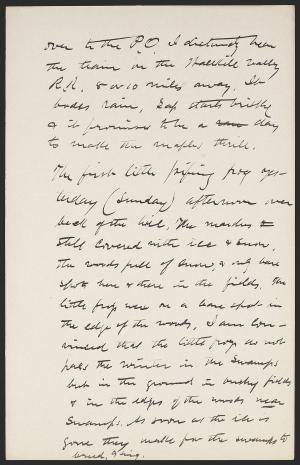 over to the P.O. I distinctly hear
the train on the Wallkill valley
R.R. 8 or 10 miles away. It
bodes rain, Sap starts briskly
& it promises to be a day
to make the maples thrill.
The first little piping frog yes-
terday (Sunday) afternoon over
back of the hill. The marshes
still covered with ice & snow,
the woods full of snow, & only bare
spots here & there in the fields. The
little frogs were on a bare spot in
the edge of the woods. I am con-
vinced that the little frogs do not
pass the winter in the swamps
but in the ground in bushy fields
& in the edges of the woods near
swamps. As soon as the ice is
gone they make for the swamps to
breed, & sing.